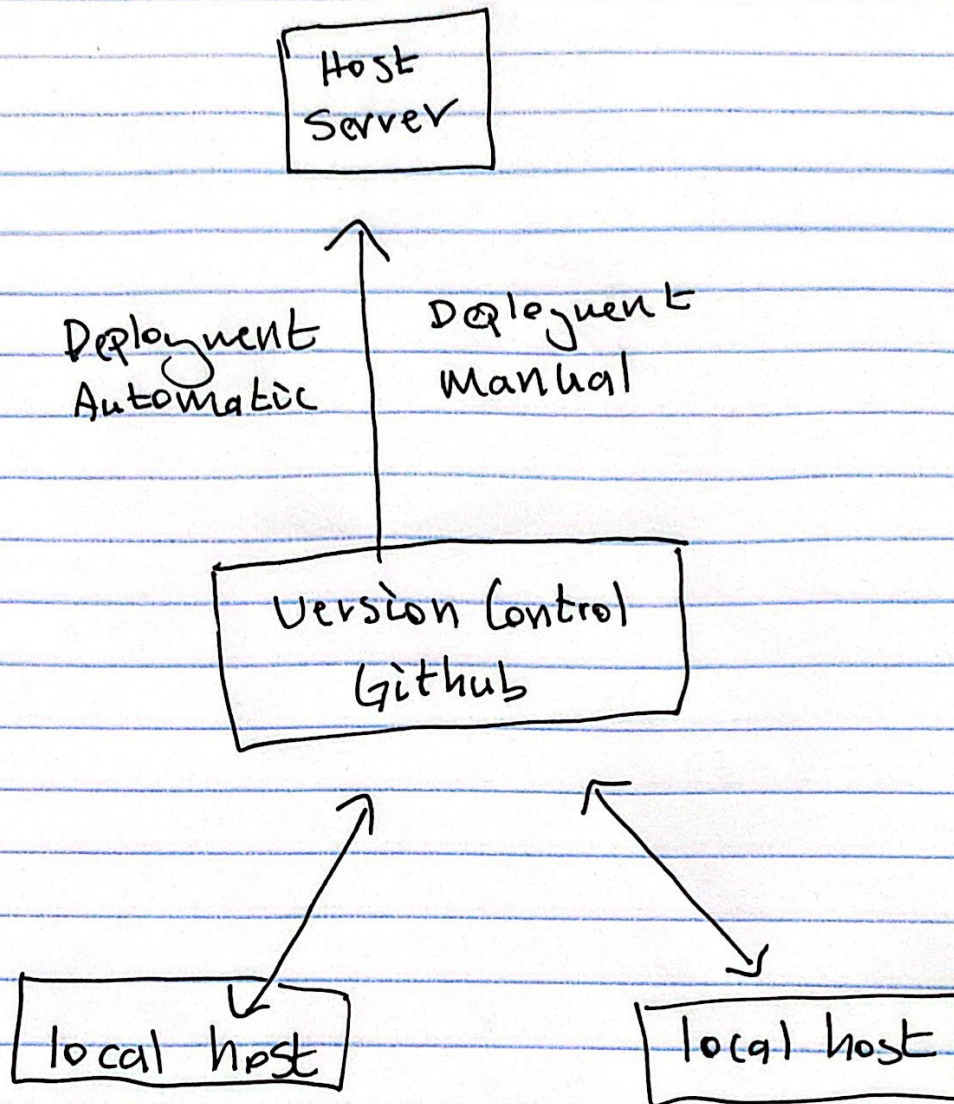 Host
Server
Deployment
Automatic
Deployment
Manual
Version Control
Github
local host
local host